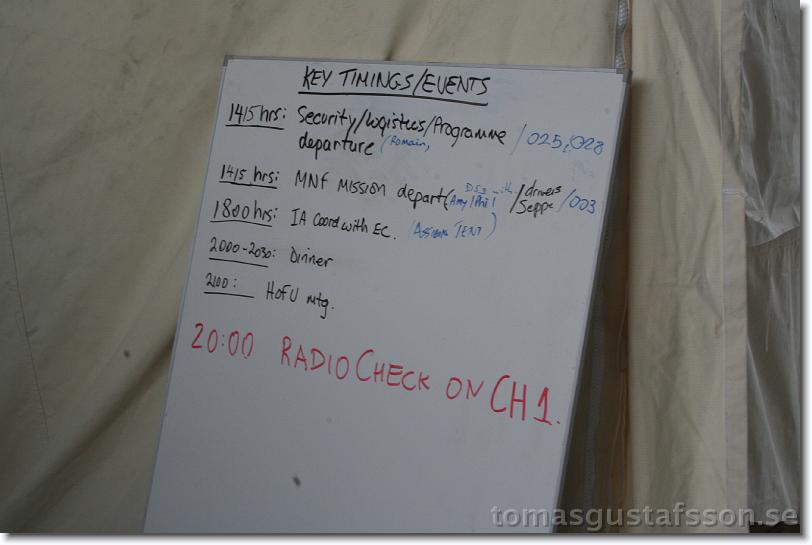 KEY TIMINGS/EVENTS
1415 hrs: Security/Logistics/Programme /025,028
departure (Romain,
1415 hrs: MNF MISSION depart (Amy/Phil /drivers Seppe /003
1800 hrs: IA Coord with EC. (Assign TENT)
2000-2030: Dinner
2100: HOFU mtg.
20:00 RADIO CHECK ON CH1.
tomasgustafsson.se